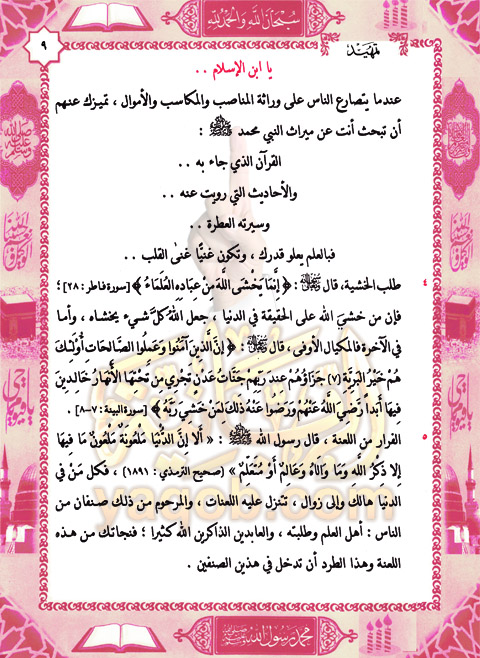 سُبْحَانَ اللَّهِ وَالْحَمْدُ لِلَّهِ
تمهيد
٩
يا ابن الإسلام ..
عندما يتصارع الناس على وراثة المناصب والمكاسب والأموال ، تميزك عنهم
أن تبحث أنت عن ميراث النبي محمد ﷺ :
القرآن الذي جاء به ..
والأحاديث التي رويت عنه ..
وسيرته العطرة ..
فبالعلم يعلو قدرك ، وتكون غنيًا غنى القلب ..
٤ طلب الخشية، قال ﷻ : ﴿ إِنَّمَا يَخْشَى اللَّهَ مِنْ عِبَادِهِ الْعُلَمَاءُ ﴾ [سورة فاطر: ٢٨] ؛
فإن من خشيَ الله على الحقيقة في الدنيا ، جعل اللهُ كلَّ شيء يخشاه ، وأما
في الآخرة فالمكيال الأوفى ، قال ﷻ : ﴿ إِنَّ الَّذِينَ آمَنُوا وَعَمِلُوا الصَّالِحَاتِ أُوْلَئِكَ
هُمْ خَيْرُ الْبَرِيَّةِ (٧) جَزَاؤُهُمْ عِندَ رَبِّهِمْ جَنَّاتُ عَدْنٍ تَجْرِي مِن تَحْتِهَا الْأَنْهَارُ خَالِدِينَ
فِيهَا أَبَدًا رَّضِيَ اللَّهُ عَنْهُمْ وَرَضُوا عَنْهُ ذَلِكَ لِمَنْ خَشِيَ رَبَّهُ ﴾ [سورة البينة : ٧-٨] .
٥ الفرار من اللعنة ، قال رسول الله ﷺ : « أَلَا إِنَّ الدُّنْيَا مَلْعُونَةٌ مَلْعُونٌ مَا فِيهَا
إِلا ذِكْرُ اللهِ وَمَا وَالَاهُ وَعَالِمٌ أَوْ مُتَعَلِّمٌ » (صحيح الترمذي : ١٨٩١) ، فكل مَنْ في
الدنيا هالك وإلى زوال ، تتنزل عليه اللعنات ، والمرحوم من ذلك صنفان من
الناس : أهل العلم وطلبته ، والعابدين الذاكرين الله كثيرا ؛ فنجاتك من هذه
اللعنة وهذا الطرد أن تدخل في هذين الصنفين .
yaqob.com
محمد رسول الله ﷺ